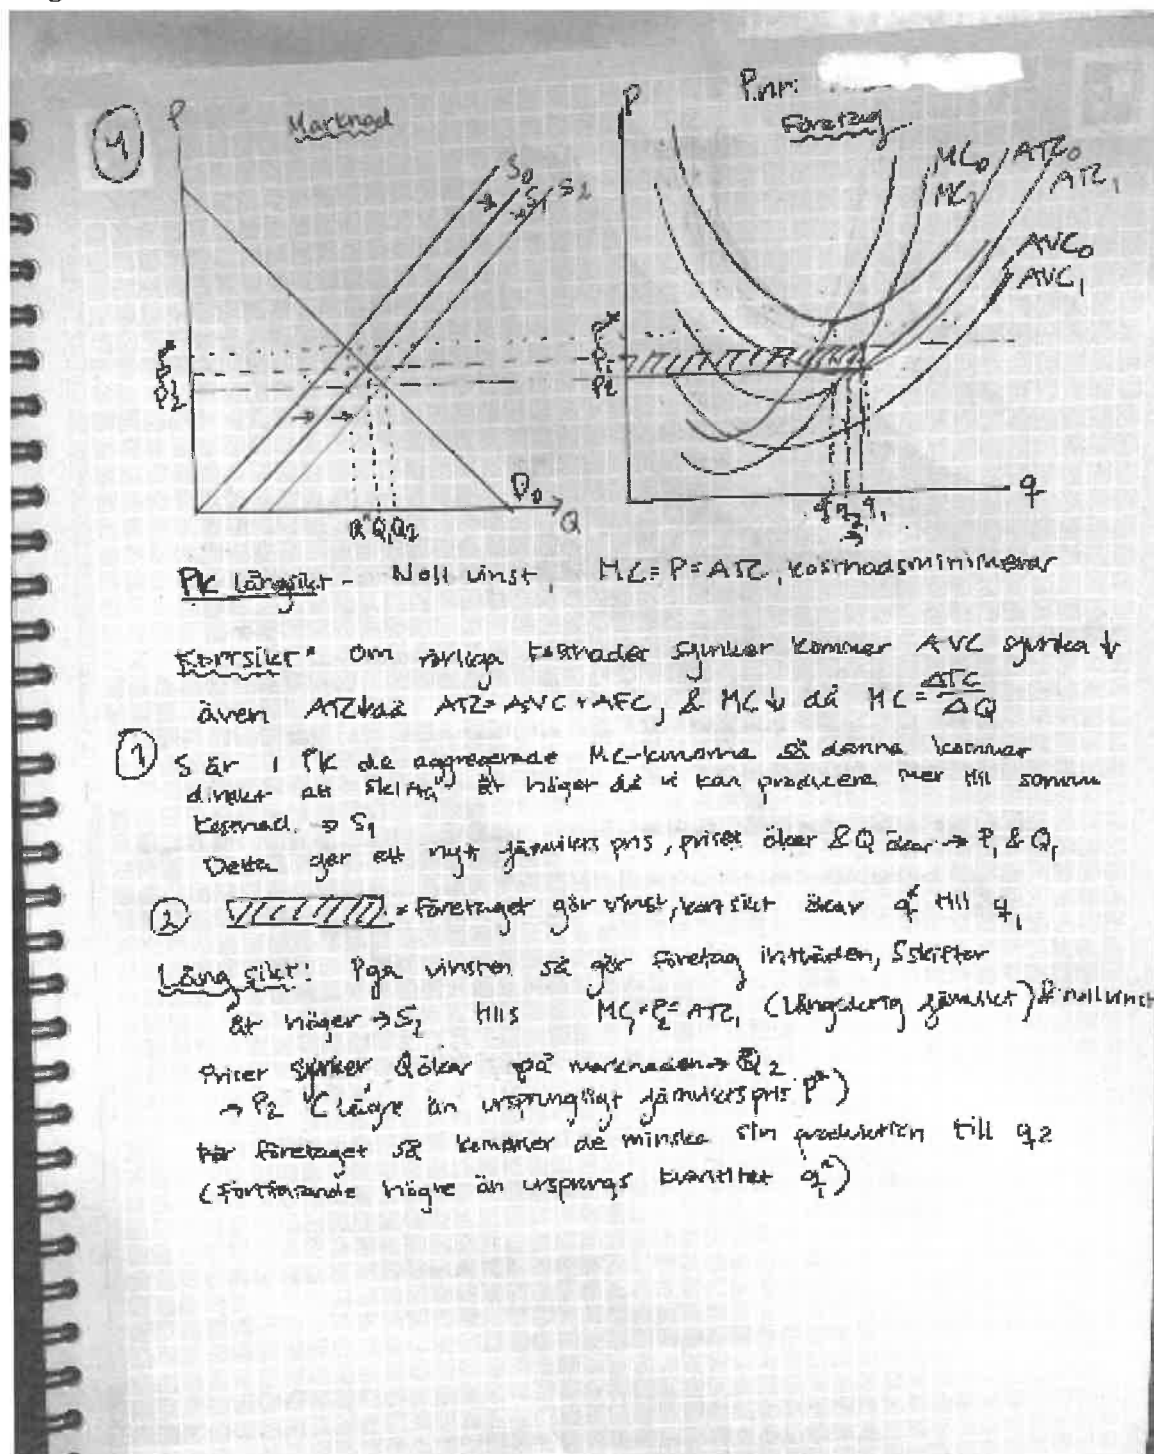 P.nr:
4
P
Marknad
S₀
S₁
S₂
P₂
D₀
Q
Q* Q₁ Q₂
P
Företag
MC₀
MC₁
ATC₀
ATC₁
AVC₀
AVC₁
P₂
q* q₂ q₁
q
PK långsikt - Noll vinst, MC = P = ATC, kostnadsminimerar
Kortsikt: Om rörliga kostnader sjunker kommer AVC sjunka ↓
även ATC↓ då ATC = AVC + AFC, & MC↓ då MC = ΔTC/ΔQ
1 S är i PK de aggregerade MC-kurvorna så denna kommer
direkt att skifta åt höger då vi kan producera mer till samma
kostnad. → S₁
Detta ger ett nytt jämvikts pris, priset ökar & Q ökar → P₁ & Q₁
2 = Företaget gör vinst, kort sikt ökar q* till q₁
Lång sikt: Pga vinsten så gör företag inträden, S skiftar
åt höger → S₂ tills MC₁ = P₂ = ATC₁ (Långsiktig jämvikt) & nollvinst
Priser sjunker Q ökar på marknaden → Q₂
→ P₂ (lägre än ursprungligt jämviktspris P*)
för företaget så kommer de minska sin produktion till q₂
(fortfarande högre än ursprungs kvantitet q*)